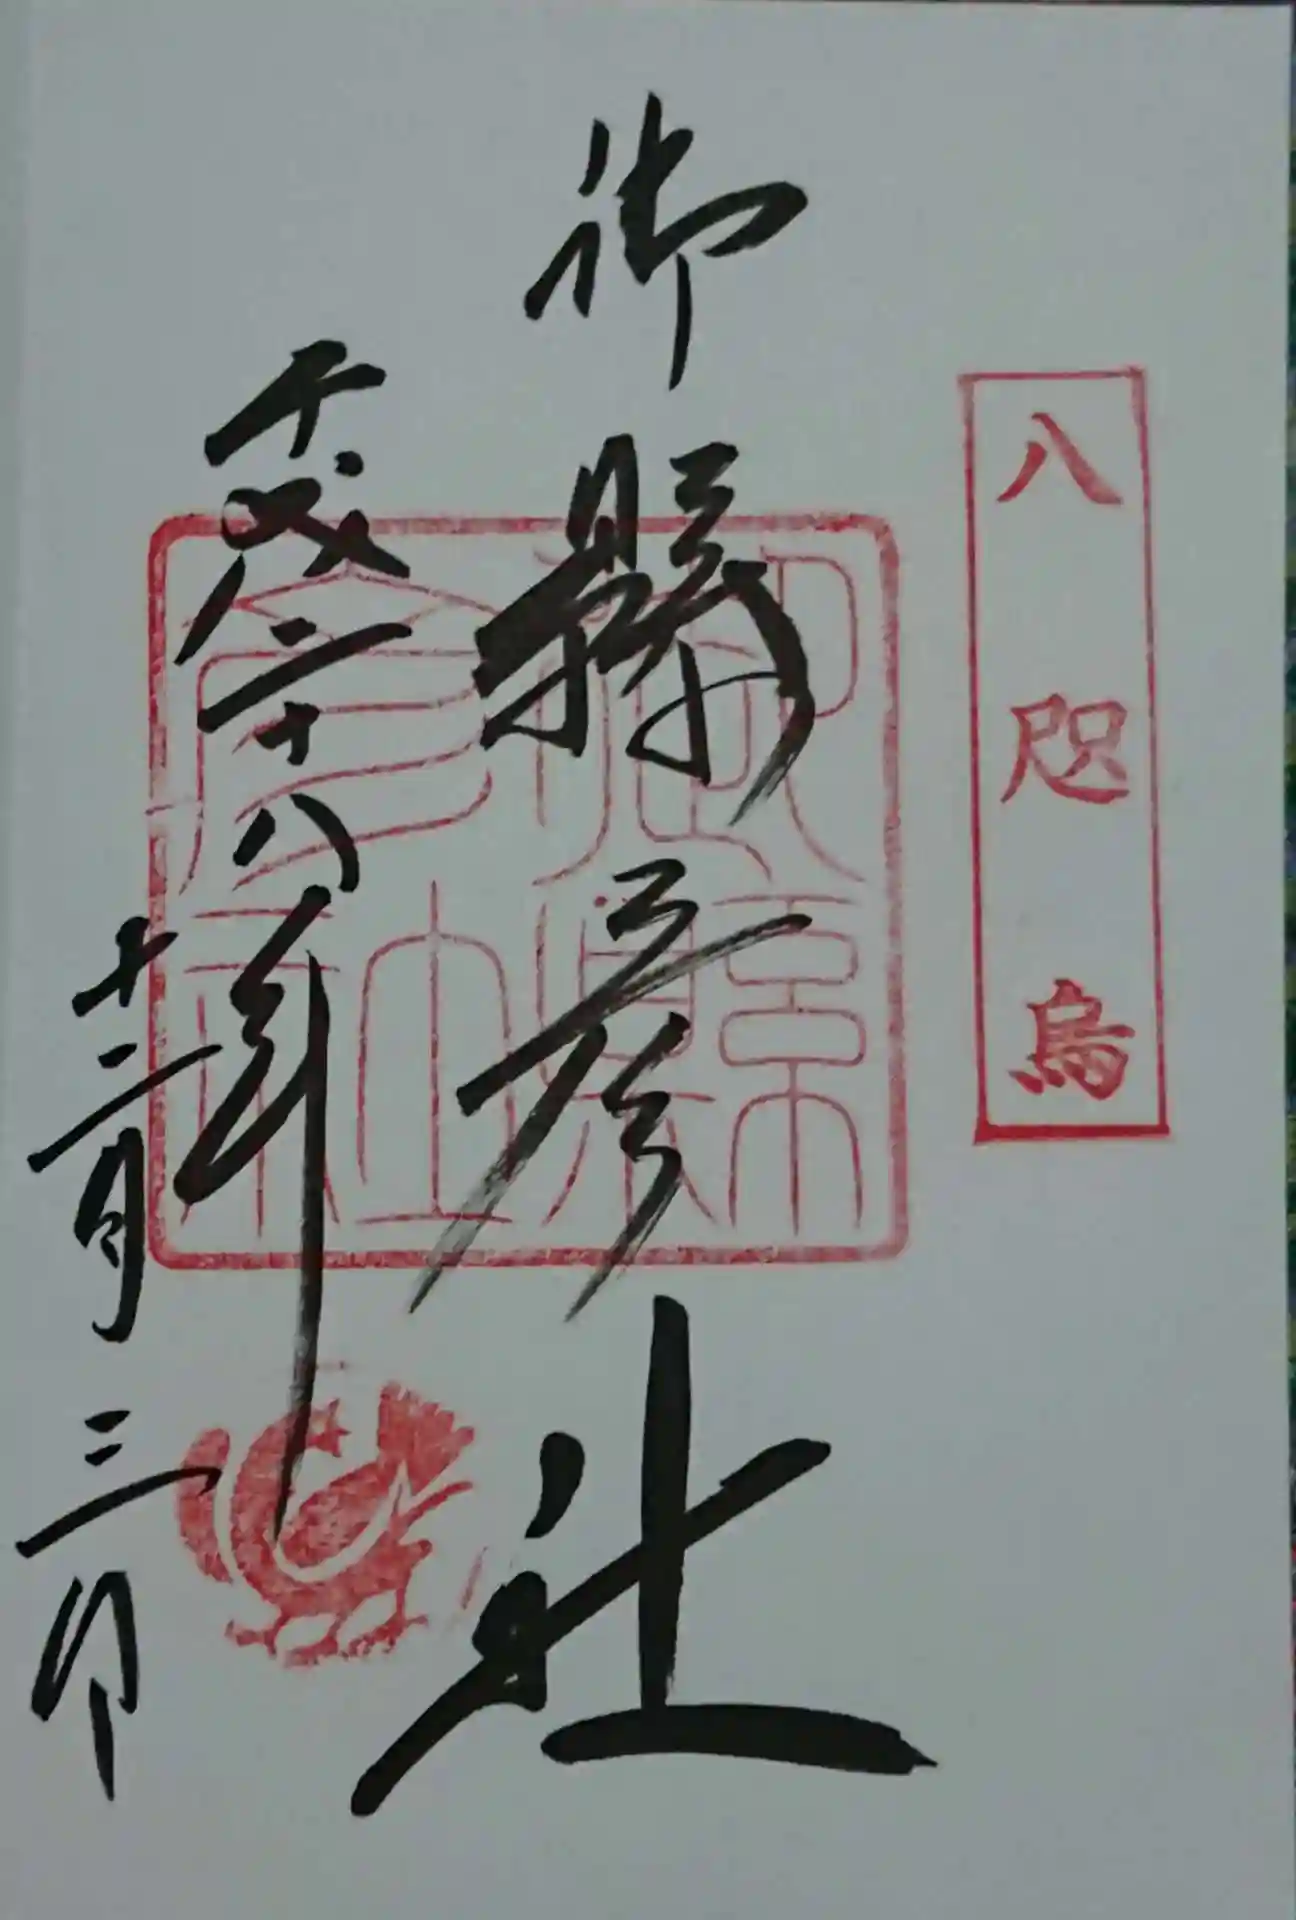 八咫烏
御縣彦社
平成二十八年
十二月三日
御縣彦社